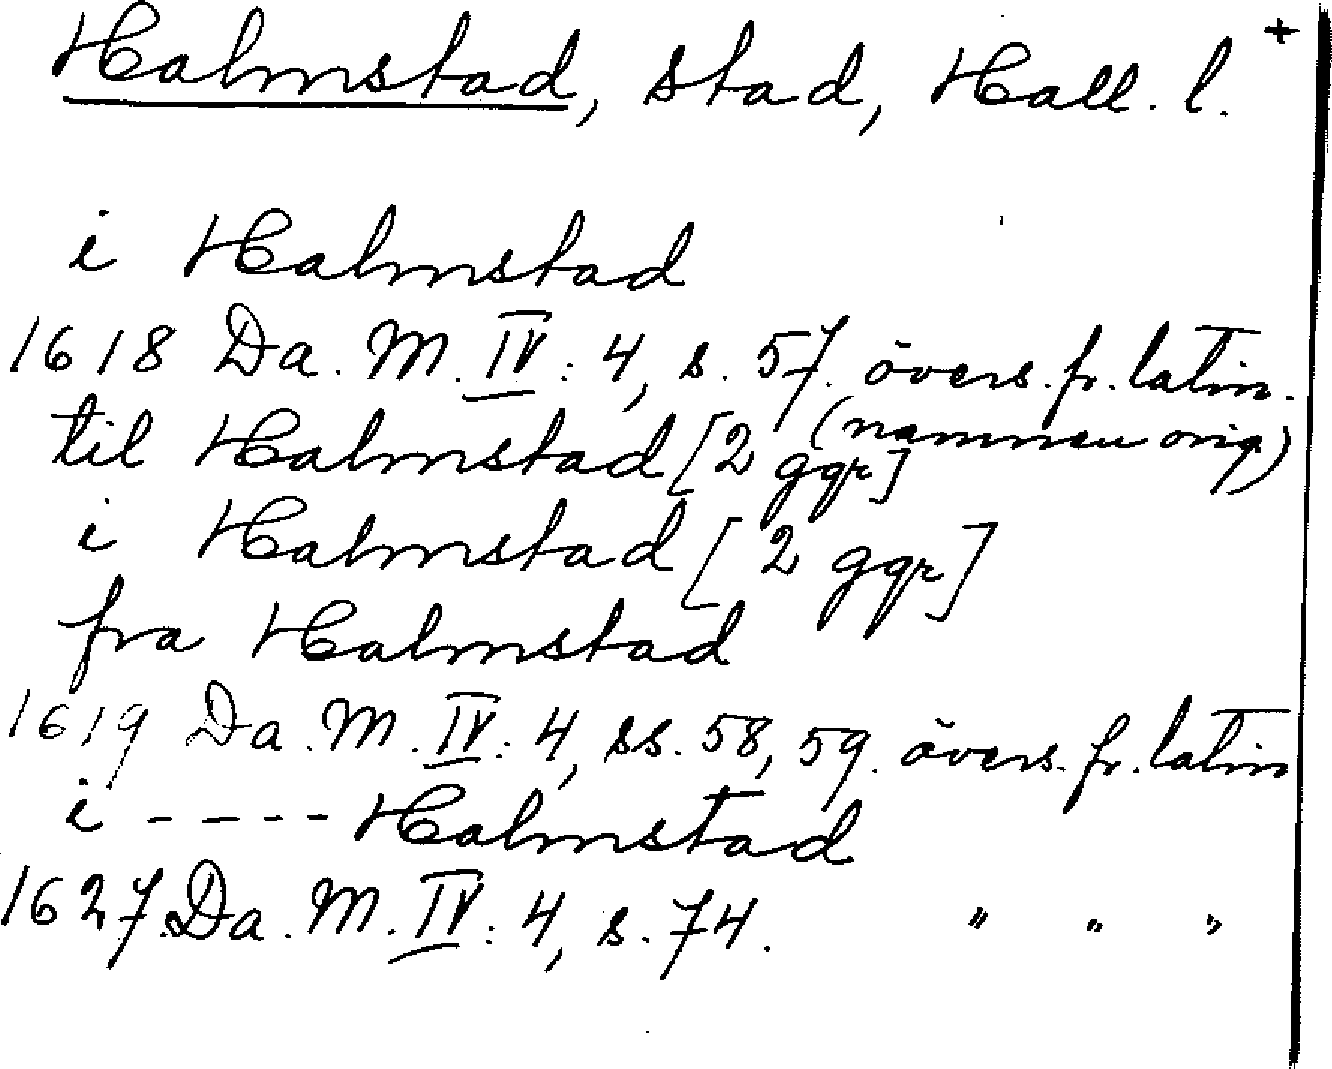 Halmstad, stad, Hall. l. +
i Halmstad
1618 Da. M. IV: 4, s. 57. övers. fr. latin.
(namnen orig.)
til Halmstad [2 ggr]
i Halmstad [2 ggr]
fra Halmstad
1619 Da. M. IV: 4, ss. 58, 59. övers. fr. latin
i - - - - Halmstad
1627. Da. M. IV: 4, s. 74. " " "